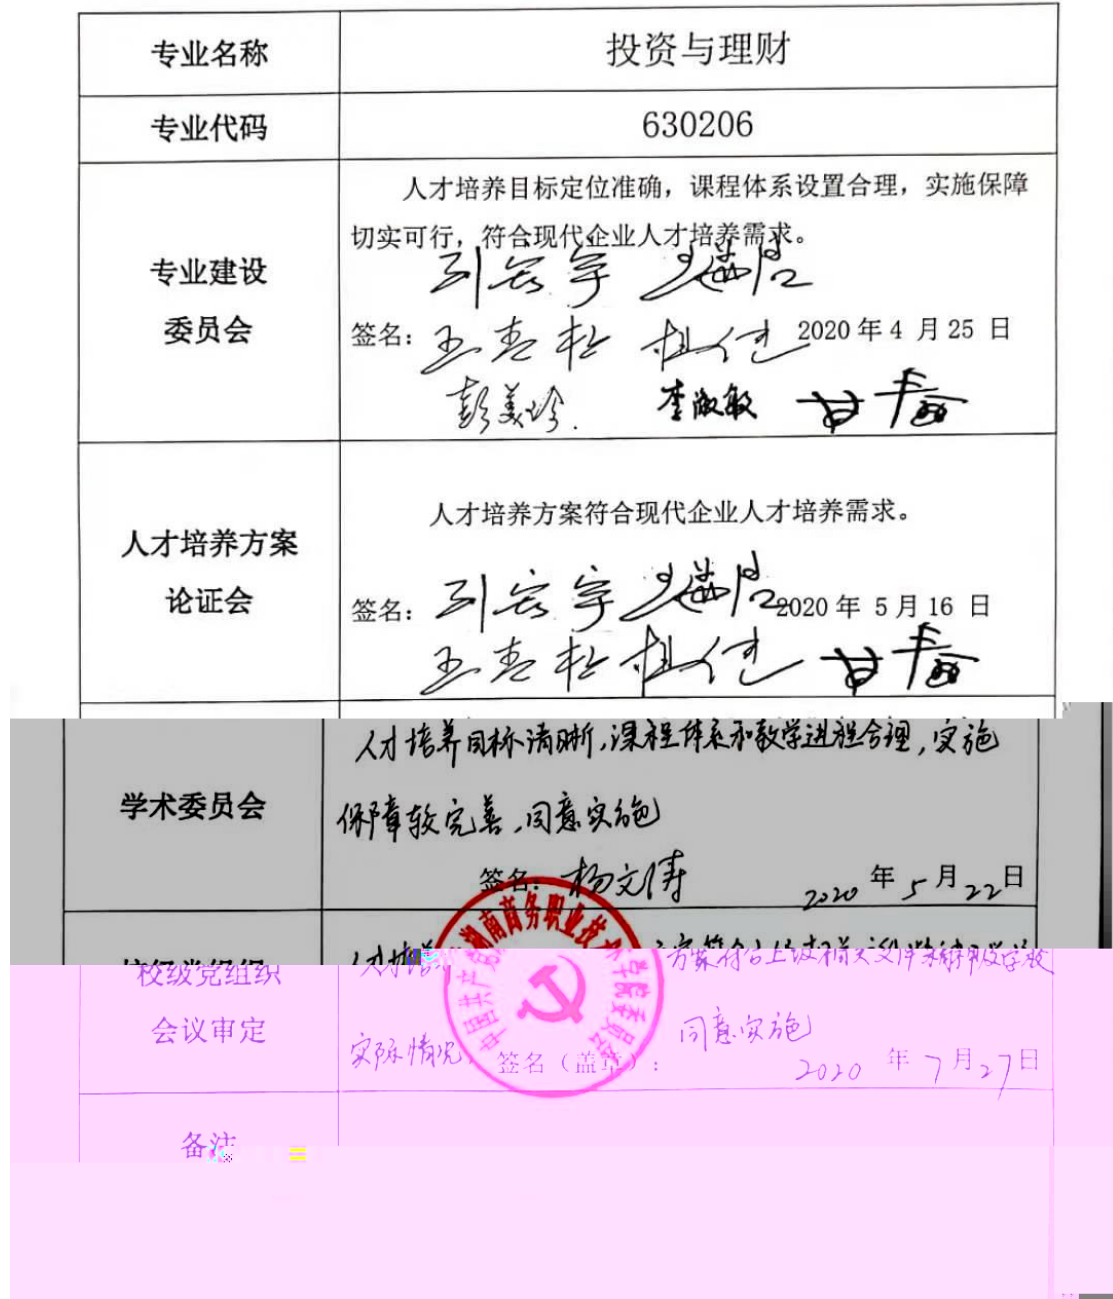 专业名称
投资与理财
专业代码
630206
专业建设
委员会
人才培养目标定位准确，课程体系设置合理，实施保障
切实可行，符合现代企业人才培养需求。
签名：
2020 年 4 月 25 日
彭美珍
李淑敏
人才培养方案
论证会
人才培养方案符合现代企业人才培养需求。
签名：
2020 年 5 月 16 日
学术委员会
人才培养目标清晰，课程体系和教学进程合理，实施
保障较完善，同意实施
签名：杨文涛
2020 年 5 月 22 日
校级党组织
会议审定
人才培养
方案符合上级相关文件精神及学校
实际情况，同意实施
签名（盖章）：
2020 年 7 月 27 日
中国共产党湖南商务职业技术学院委员会
备注